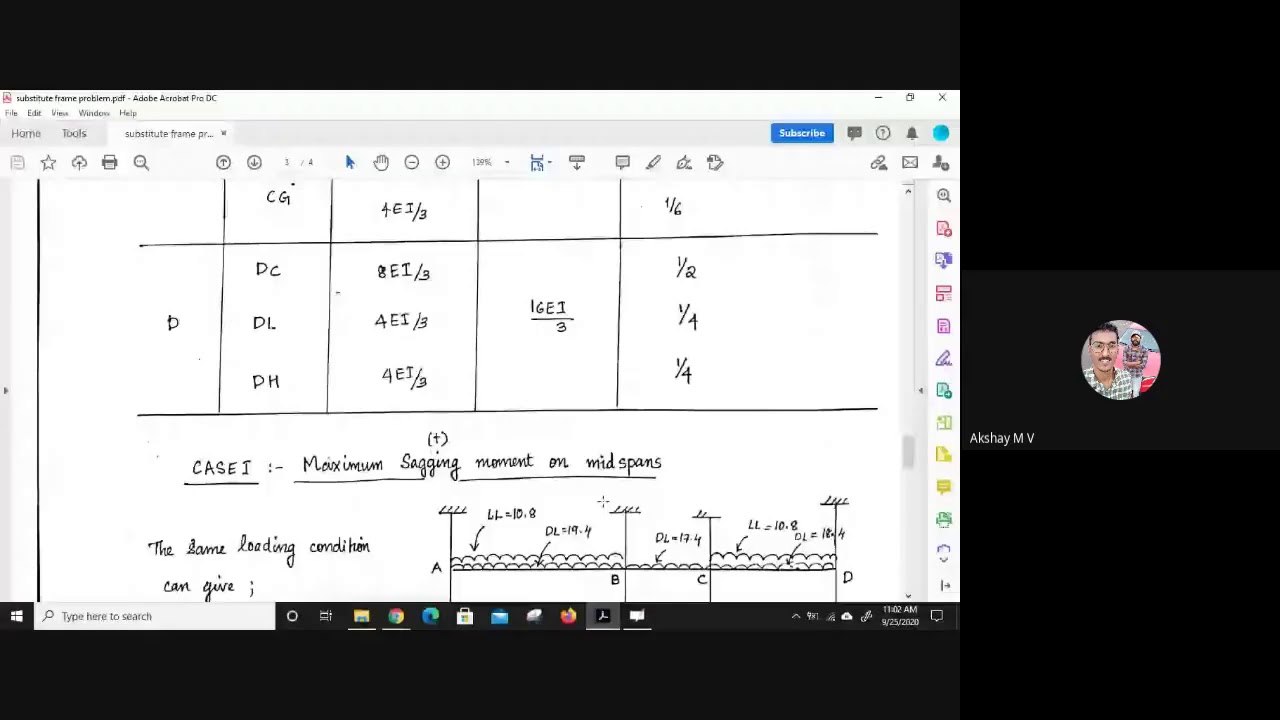 substitute frame problem.pdf - Adobe Acrobat Pro DC
File Edit View Window Help
Home Tools substitute frame pr... × Subscribe
3 / 4 139%
CG 4EI/3 1/6
DC 8EI/3 1/2
D DL 4EI/3 16EI/3 1/4
DH 4EI/3 1/4
(+)
CASE I :- Maximum Sagging moment on midspans
LL=10.8 DL=19.4 DL=17.4 LL=10.8 DL=18.4
The Same loading condition
A B C D
can give ;
Akshay M V
Type here to search
11:02 AM
9/25/2020